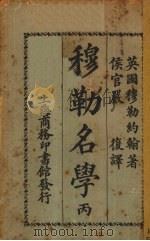 英國穆勒約翰著
侯官嚴復譯
穆勒名學 丙
商務印書館發行